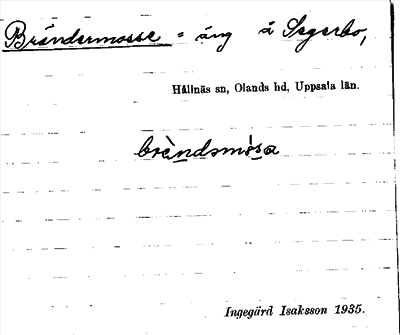 Brändermosse = äng å Segerbo,
Hållnäs sn, Olands hd, Uppsala län.
brǹndsmòsa
Ingegärd Isaksson 1935.